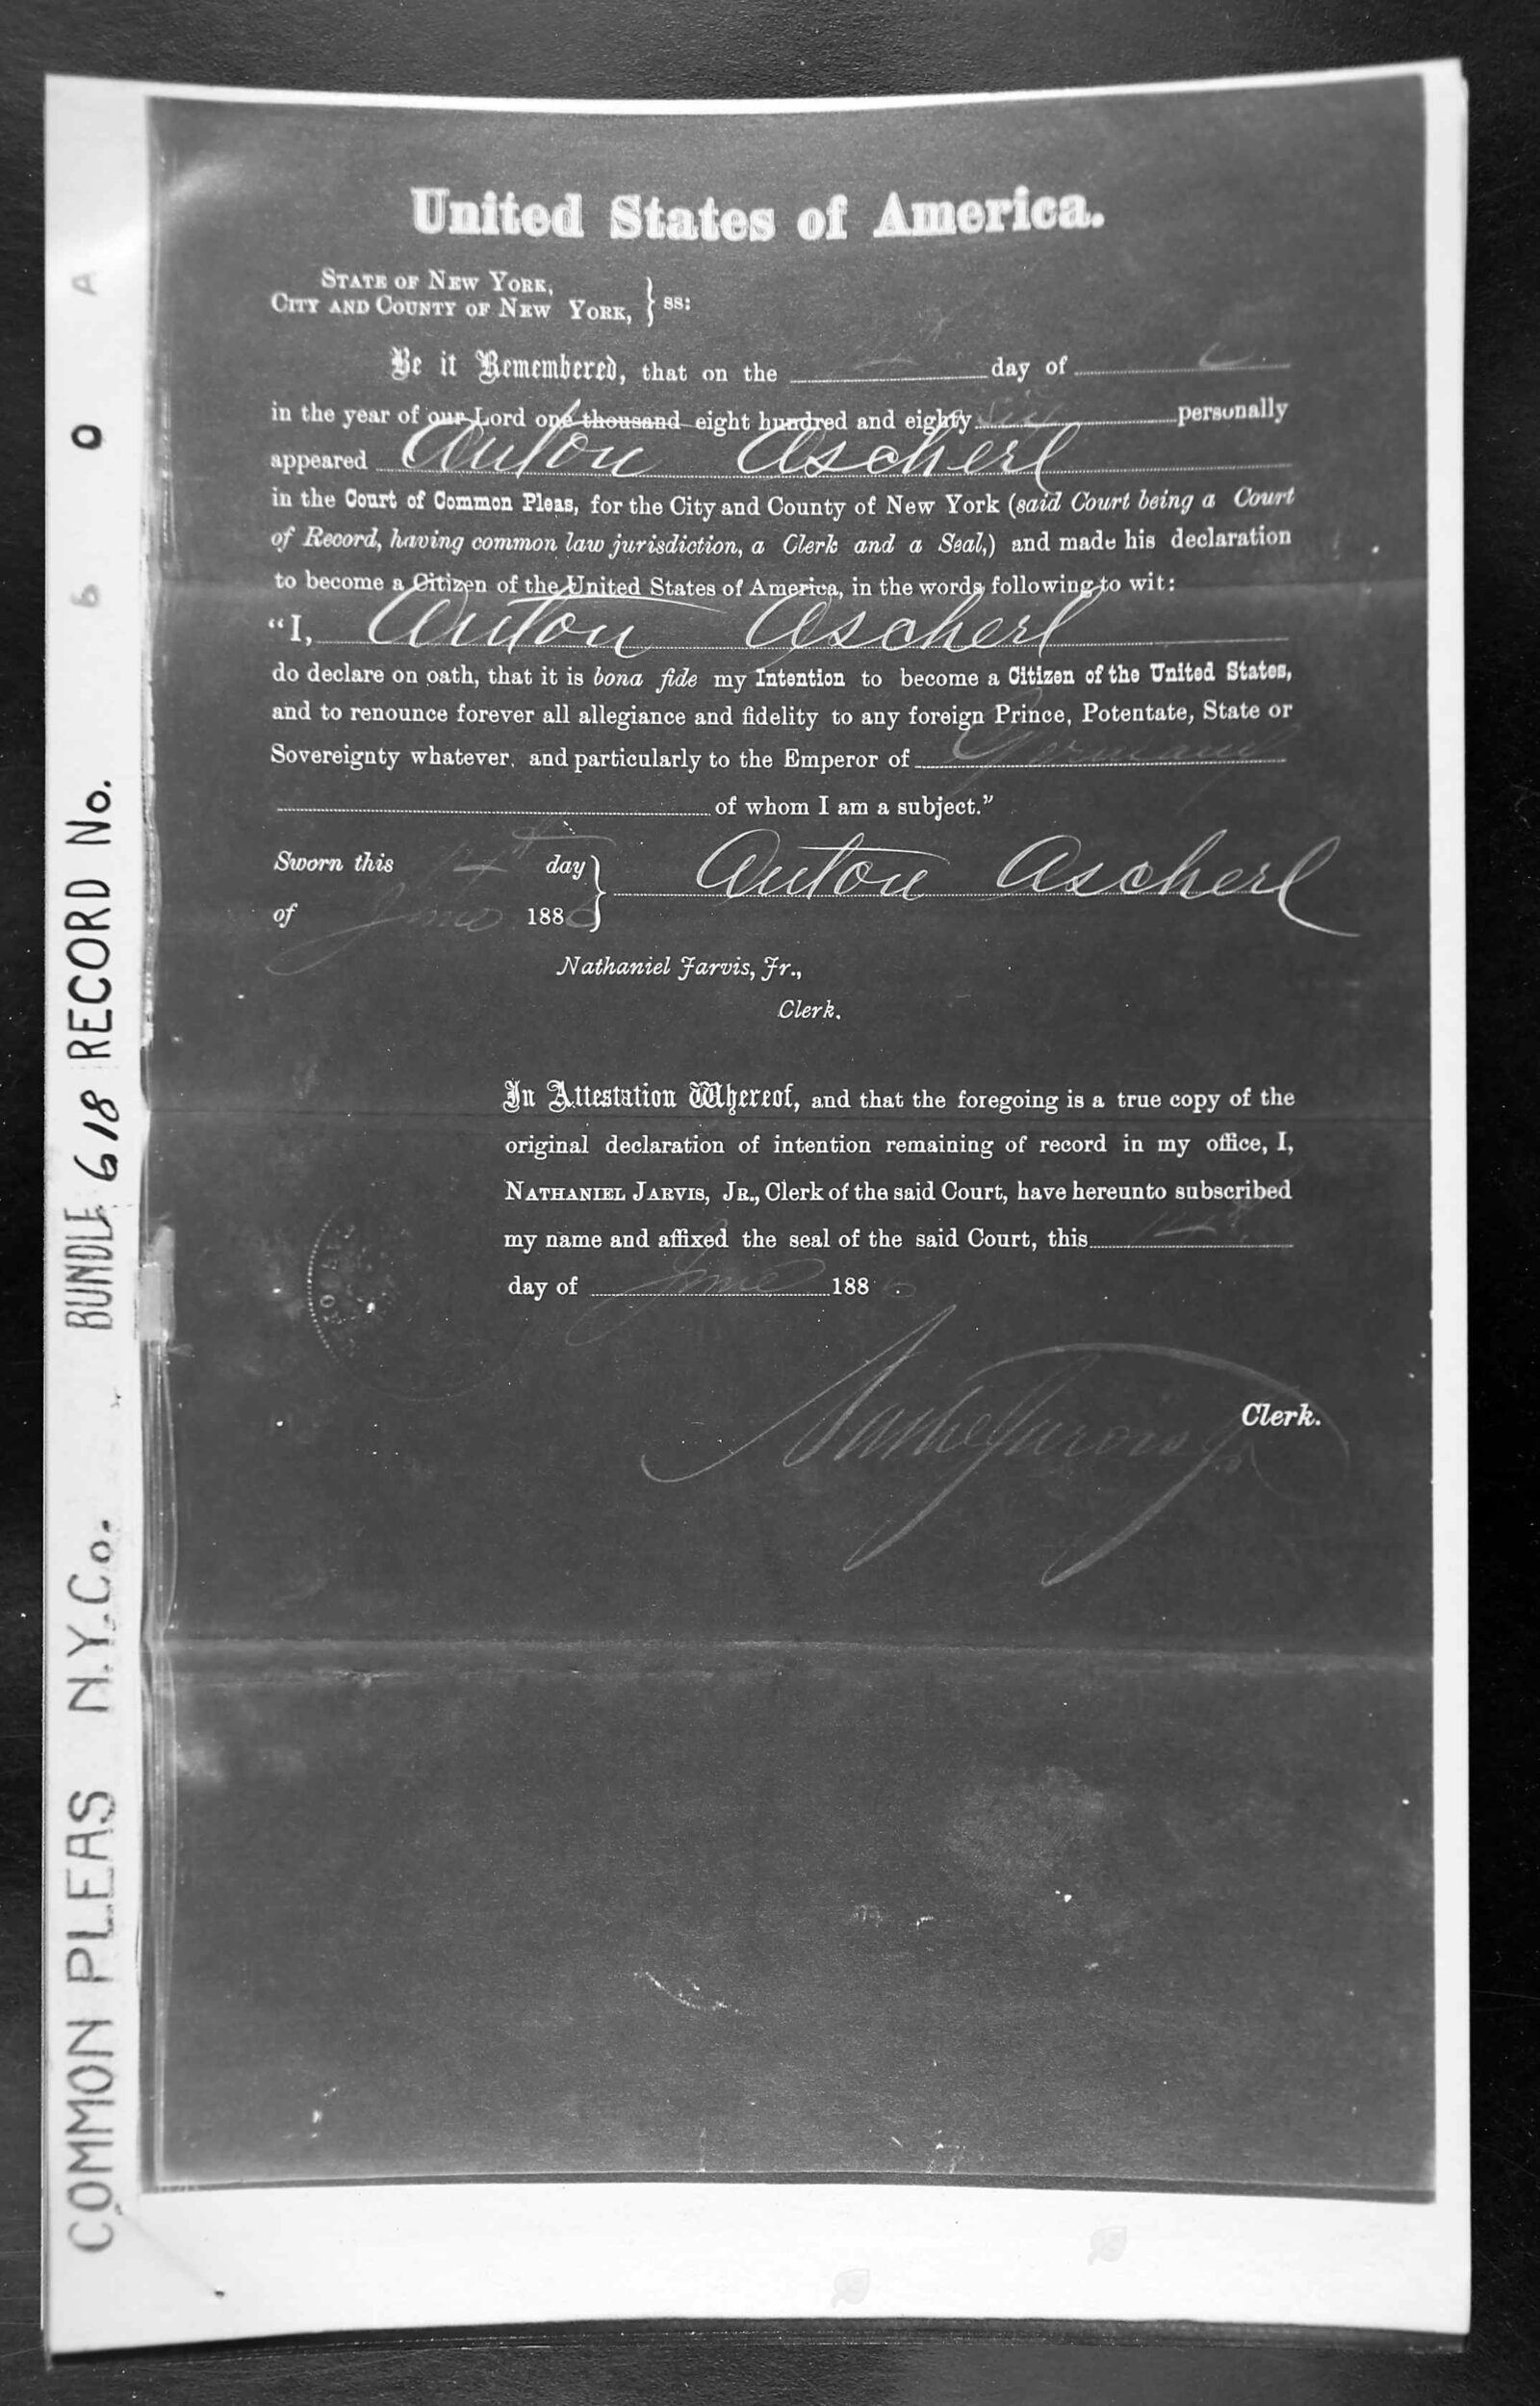 United States of America.
STATE OF NEW YORK,
CITY AND COUNTY OF NEW YORK, } ss:
Be it Remembered, that on the day of
in the year of our Lord one thousand eight hundred and eighty six personally
appeared Anton Ascherl
in the Court of Common Pleas, for the City and County of New York (said Court being a Court
of Record, having common law jurisdiction, a Clerk and a Seal,) and made his declaration
to become a Citizen of the United States of America, in the words following to wit:
“I, Anton Ascherl
do declare on oath, that it is bona fide my Intention to become a Citizen of the United States,
and to renounce forever all allegiance and fidelity to any foreign Prince, Potentate, State or
Sovereignty whatever, and particularly to the Emperor of Germany
of whom I am a subject.”
Sworn this day } Anton Ascherl
of June 1886
Nathaniel Jarvis, Jr.,
Clerk.
In Attestation Whereof, and that the foregoing is a true copy of the
original declaration of intention remaining of record in my office, I,
NATHANIEL JARVIS, JR., Clerk of the said Court, have hereunto subscribed
my name and affixed the seal of the said Court, this
day of June 1886
Clerk.
COMMON PLEAS N.Y.Co. BUNDLE 618 RECORD No. 6 0 A